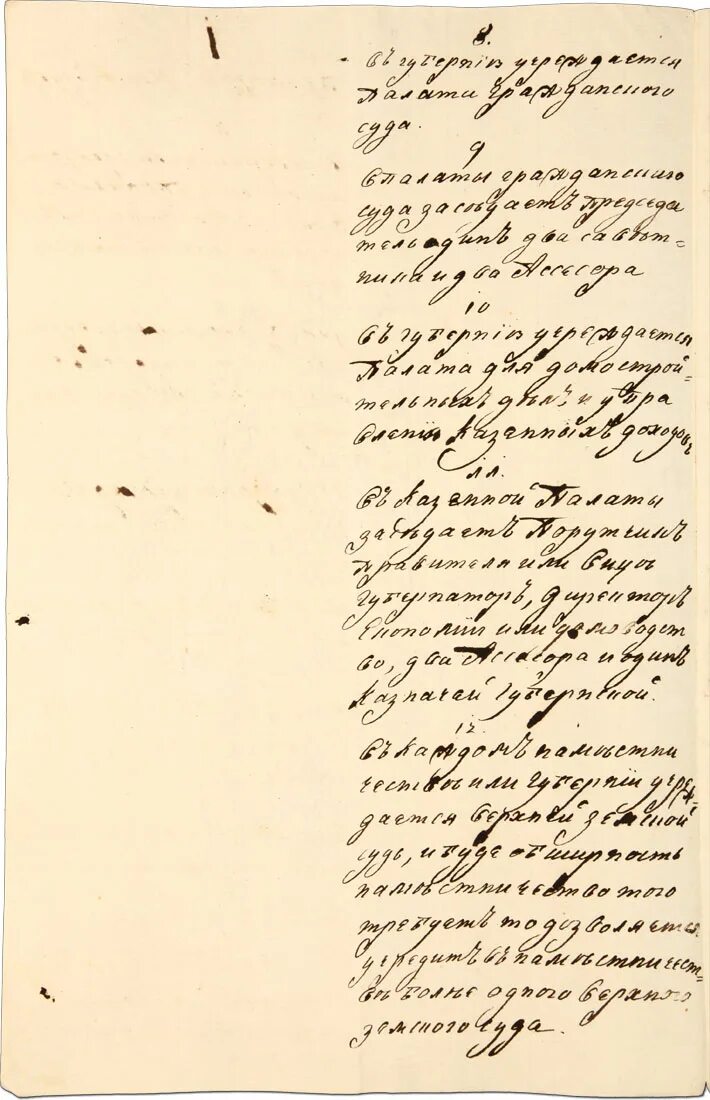 8.
въ губерніи учереждается
Палата Гражданского
суда.
9
в палаты гражданского
суда засѣдаетъ Председа
тель одинъ два савѣт=
ника и два Ассесора
10
въ губерніи учереждается
Палата для домострой=
тельныхъ дѣлъ, и упра
вленія Казенныхъ доходовъ
11.
въ Казенной Палаты
засѣдаетъ Порутчикъ
правителя или Вице
губернаторъ, Директоръ
Економіи или домоводст
во, два Ассесора и одинъ
Казначей Губернской.
12.
въ каждомъ намѣстни
чествѣ или Губерніи учереж=
дается верхней земской
судъ, и буде обширность
намѣстничества того
требуетъ то дозволяется
учредитъ въ намѣстничест=
вѣ болѣе одного верхнего
земского суда.